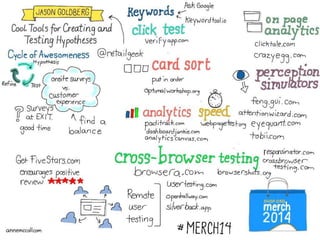 JASON GOLDBERG
Cool Tools for Creating and
Testing Hypotheses
Cycle of Awesomeness
@retailgeek
Hypothesis
Refine
Test
onsite surveys
vs.
Customer
experience
Surveys
at EXIT.
good time
find a
balance
Get FiveStars.com
encourages positive
review
annemccoll.com
Keywords
Ask Google
Keywordtool.io
click test
verifyapp.com
card sort
put in order
Optimalworkshop.org
analytics
paditrack.com
dashboardjunkie.com
analyticscanvas.com
speed
webpagetest.org
on page
analytics
clicktale.com
crazyegg.com
perception
simulators
feng-gui.com
attentionwizard.com
eyequant.com
tobii.com
cross-browser testing
browsera.com
browsershots.org
responsinator.com
crossbrowser
testing.com
Remote
user
testing
usertesting.com
openhallway.com
silverback.app
#MERCH14
merch
2014